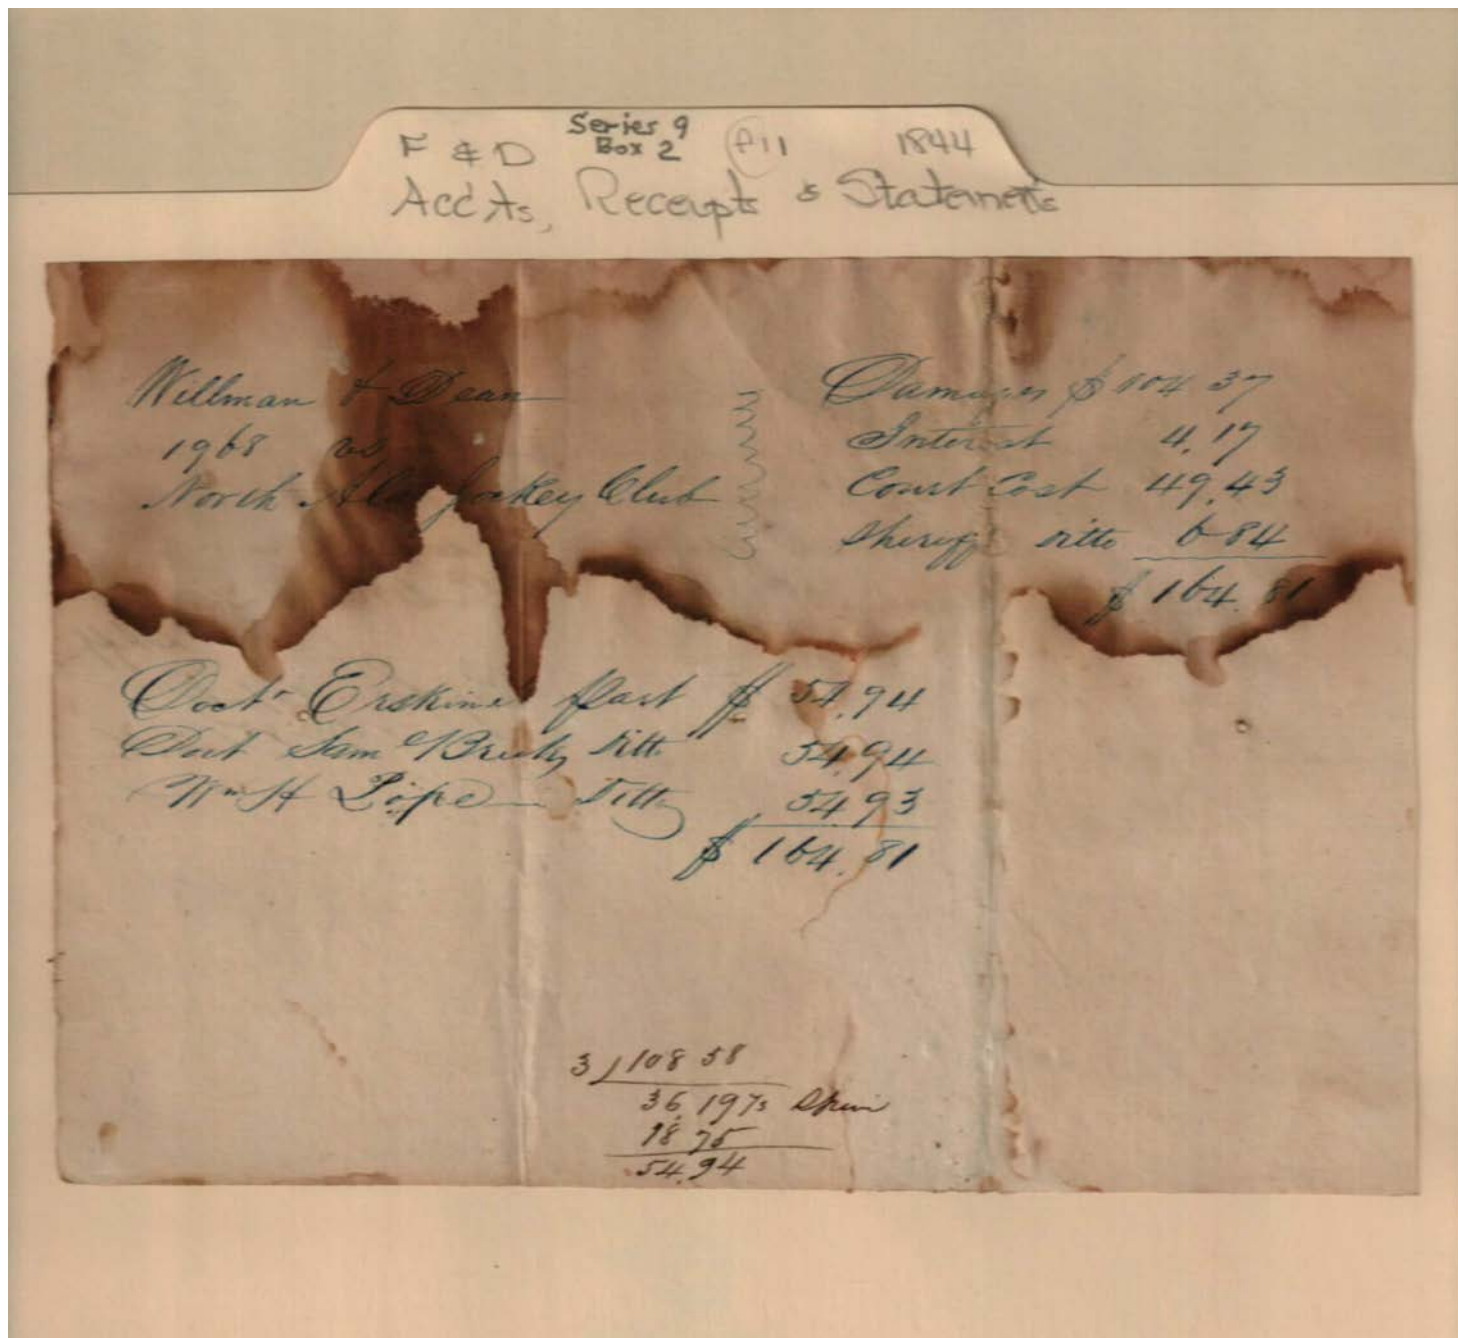 Series 9
F & D Box 2 1844
Acc'ts, Receipts & Statements
Willman & Dean
1968 vs
North Ala Jockey Club
Damages $ 104.37
Interest 4.17
Court Cost 49.43
Sheriff ditto 6.84
$ 164.81
Doct Erskine part $ 54.94
Doct Sam Ditto 54.94
Wm H Pope Ditto 54.93
$ 164.81
3 / 108 58
36,19⅓
18 75
54.94